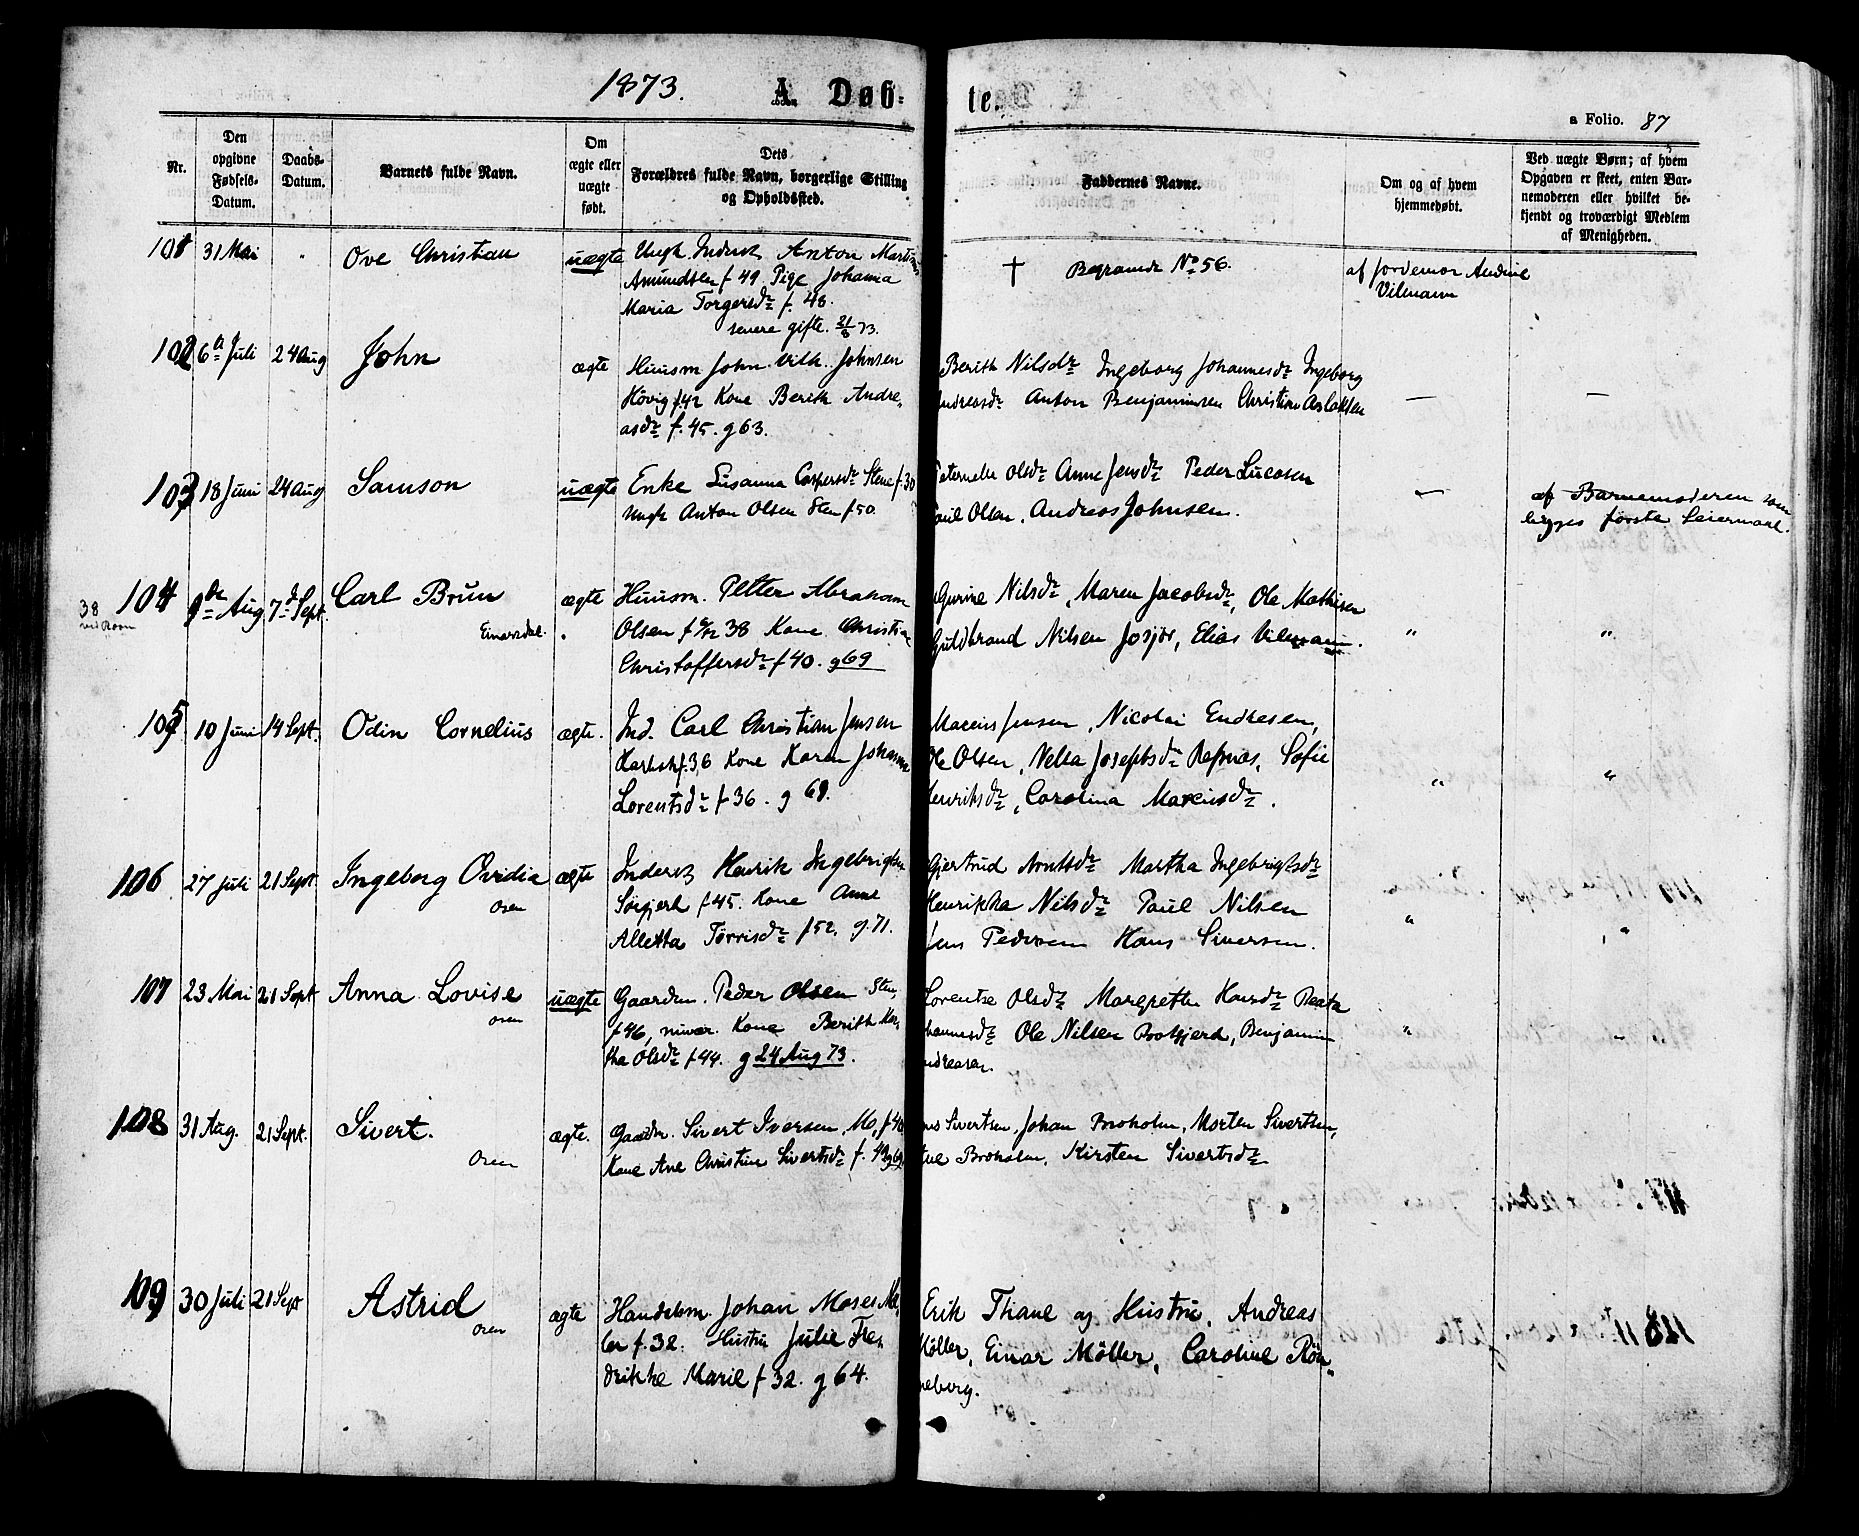 1873. A. Døb-
te.
a Folio. 87
Nr.
Den
opgivne
Fødsels-
Datum.
Daabs-
Datum.
Barnets fulde Navn.
Om
ægte eller
uægte
født.
Dets
Forældres fulde Navn, borgerlige Stilling
og Opholdssted.
Faddernes Navne.
Om og af hvem
hjemmedøbt.
Ved uægte Børn; af hvem
Opgaven er skeet, enten Bar-
nemoderen eller hvilket be-
kjendt og troværdigt Medlem
af Menigheden.
101 31 Mai " Ove Christian uægte Ungk. Inderst Anton Martinus
Amundsen f 49 Pige Johanna
Maria Torgersdr f. 48.
senere gifte. 21/8 73.
† Begravede No 56.
af Jordemor Andrine
Vilmann
102 6te Juli 24 Aug John ægte Huusm John Johnsen
Hövig f.42 Kone Berith Andre-
asdr f. 45. g 63.
Berith Nilsdr Ingeborg Johannesdr Ingeborg
Andreasdr Anton Benjaminsen Christian Aslaksen — —
103 18 Juni 24 Aug Samson uægte Enke Susanna Caspersdr Stene f. 30
Ungk Anton Olsen Sten f 50.
Peternelle Olsdr Anne Jensdr Peder Lucasen
Paul Olsen, Andreas Johnsen. —
af Barnemoderen som
begges første Leiermaal.
38
ved Roen
104 9de Aug 7de Sept. Carl Brun
Einarsdal. ægte Huusm. Petter Abraham
Olsen f 9/12 38 Kone Christia
Christoffersdr f 40. g 69
Gurine Nilsdr, Maren Jacobsdr, Ole Mathisen
Guldbrand Nilsen Josjor, Elias Vilmann. " "
105 10 Juni 14 Sept. Odin Cornelius ægte. Ind. Carl Christian Jensen
f. 36 Kone Karen Johanna
Lorentsdr f 36. g 61.
Marcius Jensen, Nicolai Endresen,
Ole Olsen, Nella Josephsdr Refsnes, Sofie
Henriksdr, Carolina Marciusdr. " "
106 27 Juli 21 Sept. Ingeborg Ovidia
Osen ægte Inderst Henrik Ingebrigtsen
Sörgjerd f 45. Kone Anne
Alletta Törrisdr f 52. g. 71.
Gjertrud Arntsdr Martha Ingebrigtsdr
Henrikka Nilsdr Paul Nilsen
Jens Pedersen Hans Siversen. " "
107 23 Mai 21 Sept Anna Lovise
Osen uægte Gaardm. Peder Olsen Sten,
f 46, nuvær. Kone Berith Mar-
tha Olsdr f 44. g 24 Aug 73.
Lorentse Olsdr Margrethe Hansdr Beata
Johannesdr Ole Nilsen Brotgjerd, Benjamin
Andreasen. " "
108 31 Aug. 21 Sept. Sivert.
Osen ægte. Gaardm. Sivert Iversen, Mo, f 40
Kone Ane Christine Sivertsdr f.
Sivertsen, Johan Broholm, Morten Sivertsen,
Broholm, Kirsten Sivertsdr
109 30 Juli 21 Sept Astrid
Osen ægte Handelsm. Johan Moses Møl-
ler f. 32. Hustru Julie Fre-
drikke Marie f 32. g 64.
Erik Thane og Hustru, Andreas
Möller, Einar Möller, Caroline Rön-
neberg.